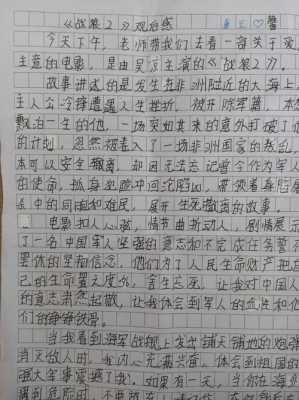 《战狼2》观后感
今天下午,老师带我们去看一部关于爱
主意的电影,是由吴京主演的《战狼2》。
故事讲述的是发生在非洲附近的大海上
主人公冷锋遭遇人生挫折,被开除军籍,本
飘泊一生的他,一场突如其来的意外打破了他
的计划,忽然被卷入了一场非洲国家的叛乱,
本可以安全撤离,却因无法忘记曾今作为军人
的使命,孤身犯险冲回沦陷区,带领着身陷屠
杀中的同胞和难民,展开生死撤离的故事
电影扣人心弦,情节曲折动人,剧情展示
了一名中国军人坚强的意志和不完成任务誓不
罢休的坚定信念,他们为了人民生命财产把自
己的生命置之度外,舍生忘死,让我对中国人
的意志肃然起敬,让我体会到军人的血性和他
们的铮铮铁骨。
当我看到海军战舰上发出铺天铺地的炮弹
消灭敌人时,我内心充满兴奋,体会到祖国的
强大军事震撼了我,如果有一天,当你在海外
遇到危险时,不要放弃